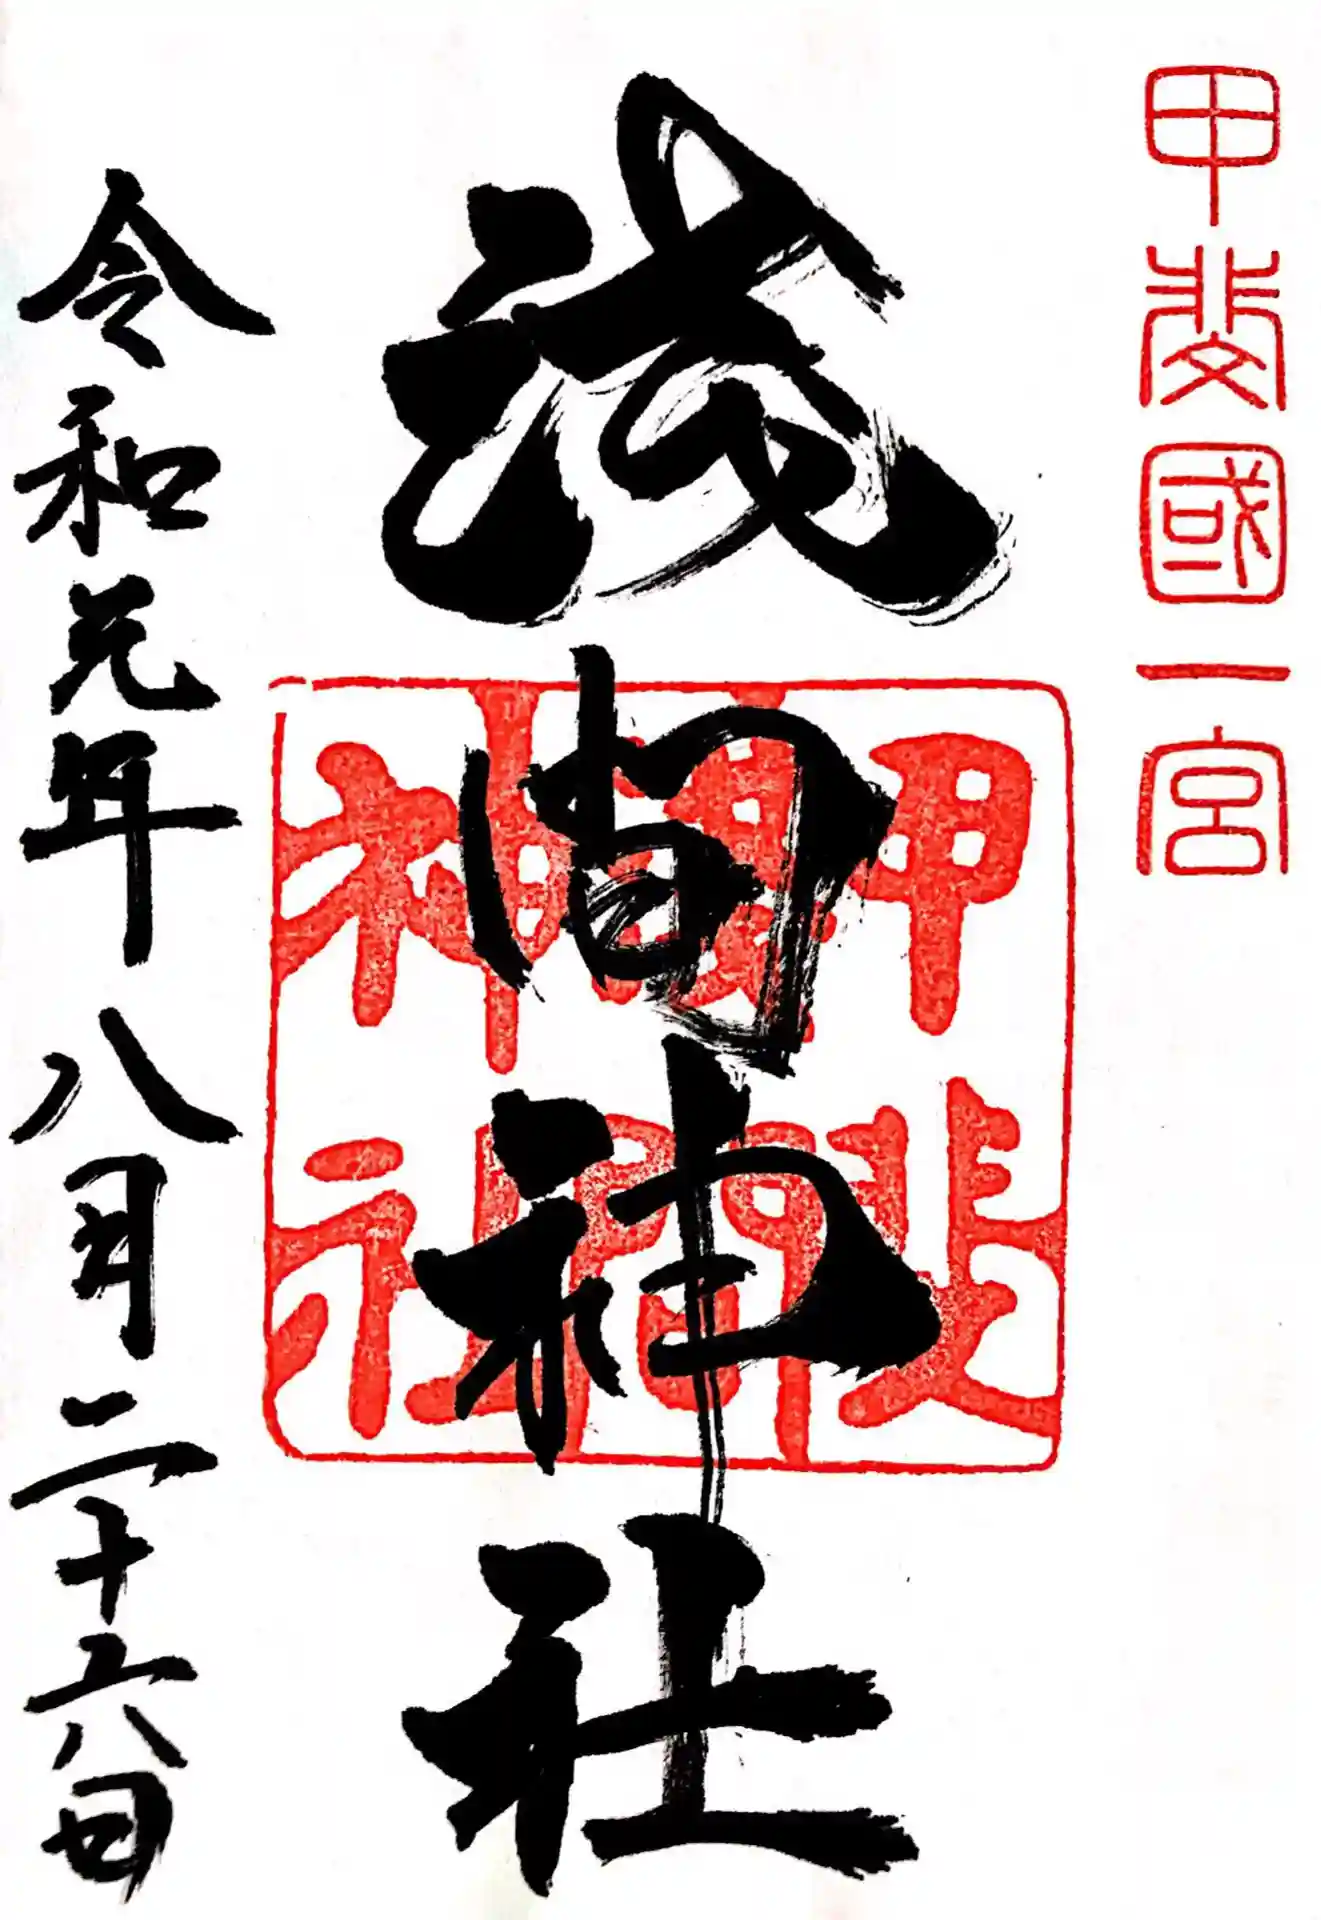 甲斐國一宮
浅間神社
甲斐
間
神社
令和元年八月二十六日